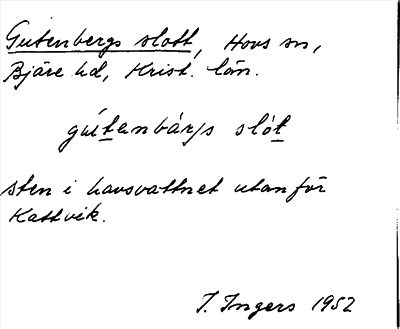 Gutenbergs slott, Hovs sn,
Bjäre hd, Krist. län.
gútenbárjs slót
sten i havsvattnet utanför
Kattvik.
I. Ingers 1952